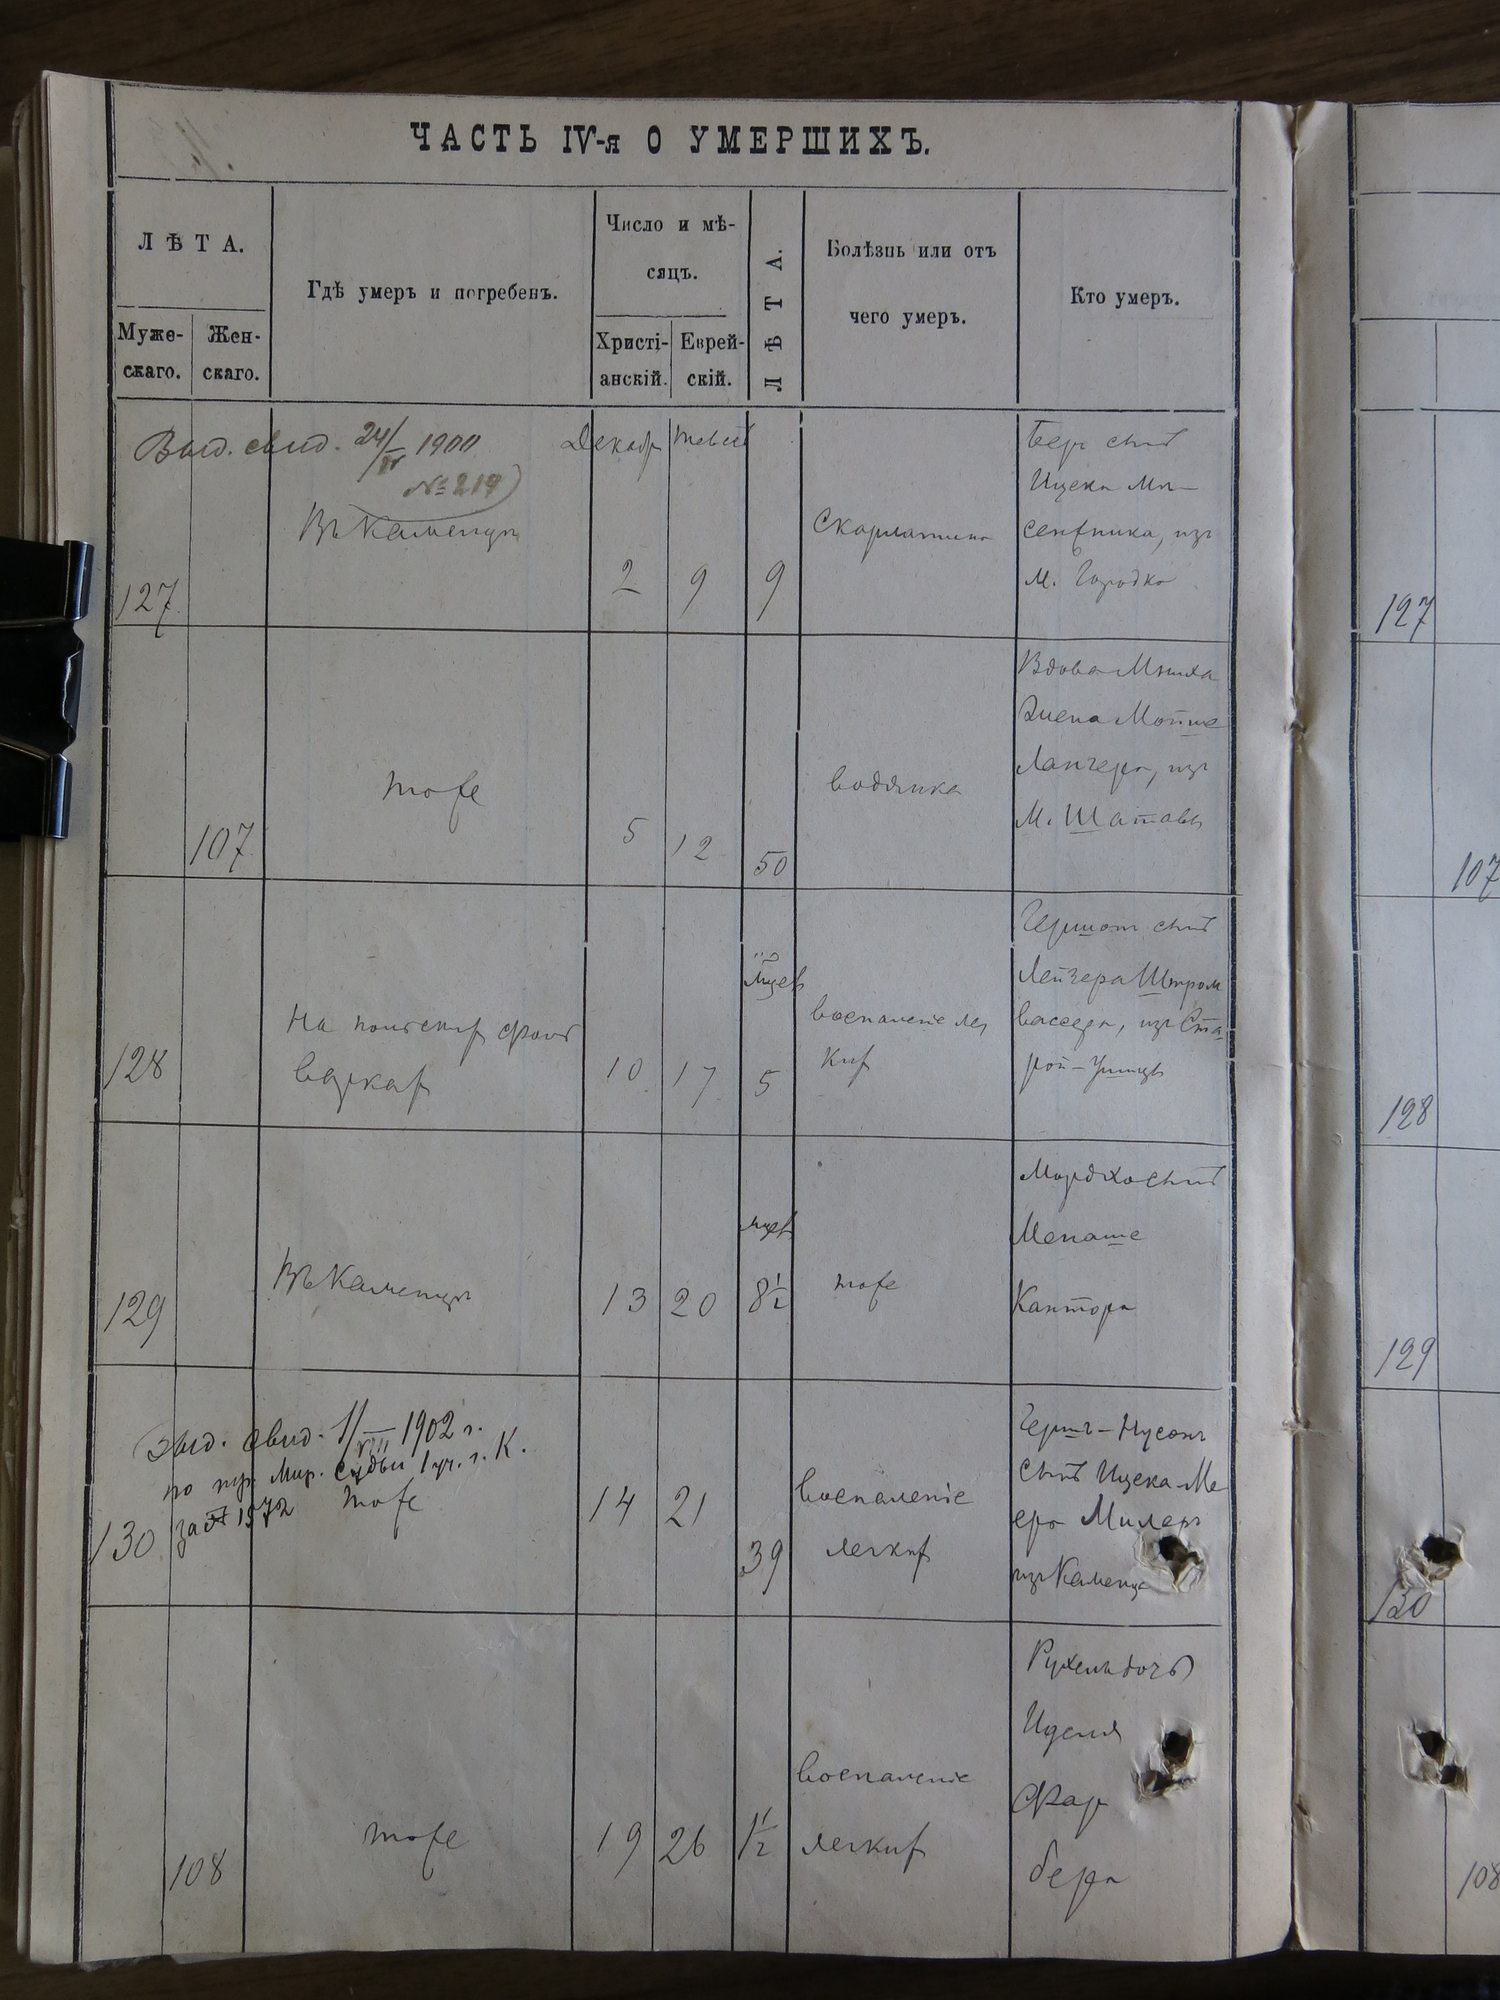 ЧАСТЬ IV-я О УМЕРШИХЪ.
ЛѢТА.
Муже-
скаго.
Жен-
скаго.
Гдѣ умеръ и погребенъ.
Число и мѣ-
сяцъ.
Христі-
анскій.
Еврей-
скій.
ЛѢТА.
Болѣзнь или отъ
чего умеръ.
Кто умеръ.
Выд. свид. 24/IV 1900
№ 219
127
Въ Каменцѣ
Декабр
Тевет
2
9
9
Скарлатина
Бер сынъ
Ицека
м. Городка
127
107
тоже
5
12
50
водянка
Вдова
Элена Мошко
Лангера, изъ
м. Шатавы
107
128
На
10
17
мцев
5
воспаленіе лег
кихъ
Гершон сынъ
Лейзера Штром
вассера, изъ Ста
рой-Ушицы
128
129
Въ Каменцѣ
13
20
мцев
8 1/2
тоже
Мордхо сынъ
Менаше
Кантора
129
Выд. свид. 1/VIII 1902 г.
по тр. Мир. Судьи 1 уч. г. К.
за № 1572
130
тоже
14
21
39
воспаленіе
легкихъ
Гершъ-Нусонъ
сынъ Ицека-Ме
ера Милеръ
изъ Каменца
130
108
тоже
19
26
1 1/2
воспаленіе
легкихъ
Рухель дочь
Иделя
Фар
бера
108